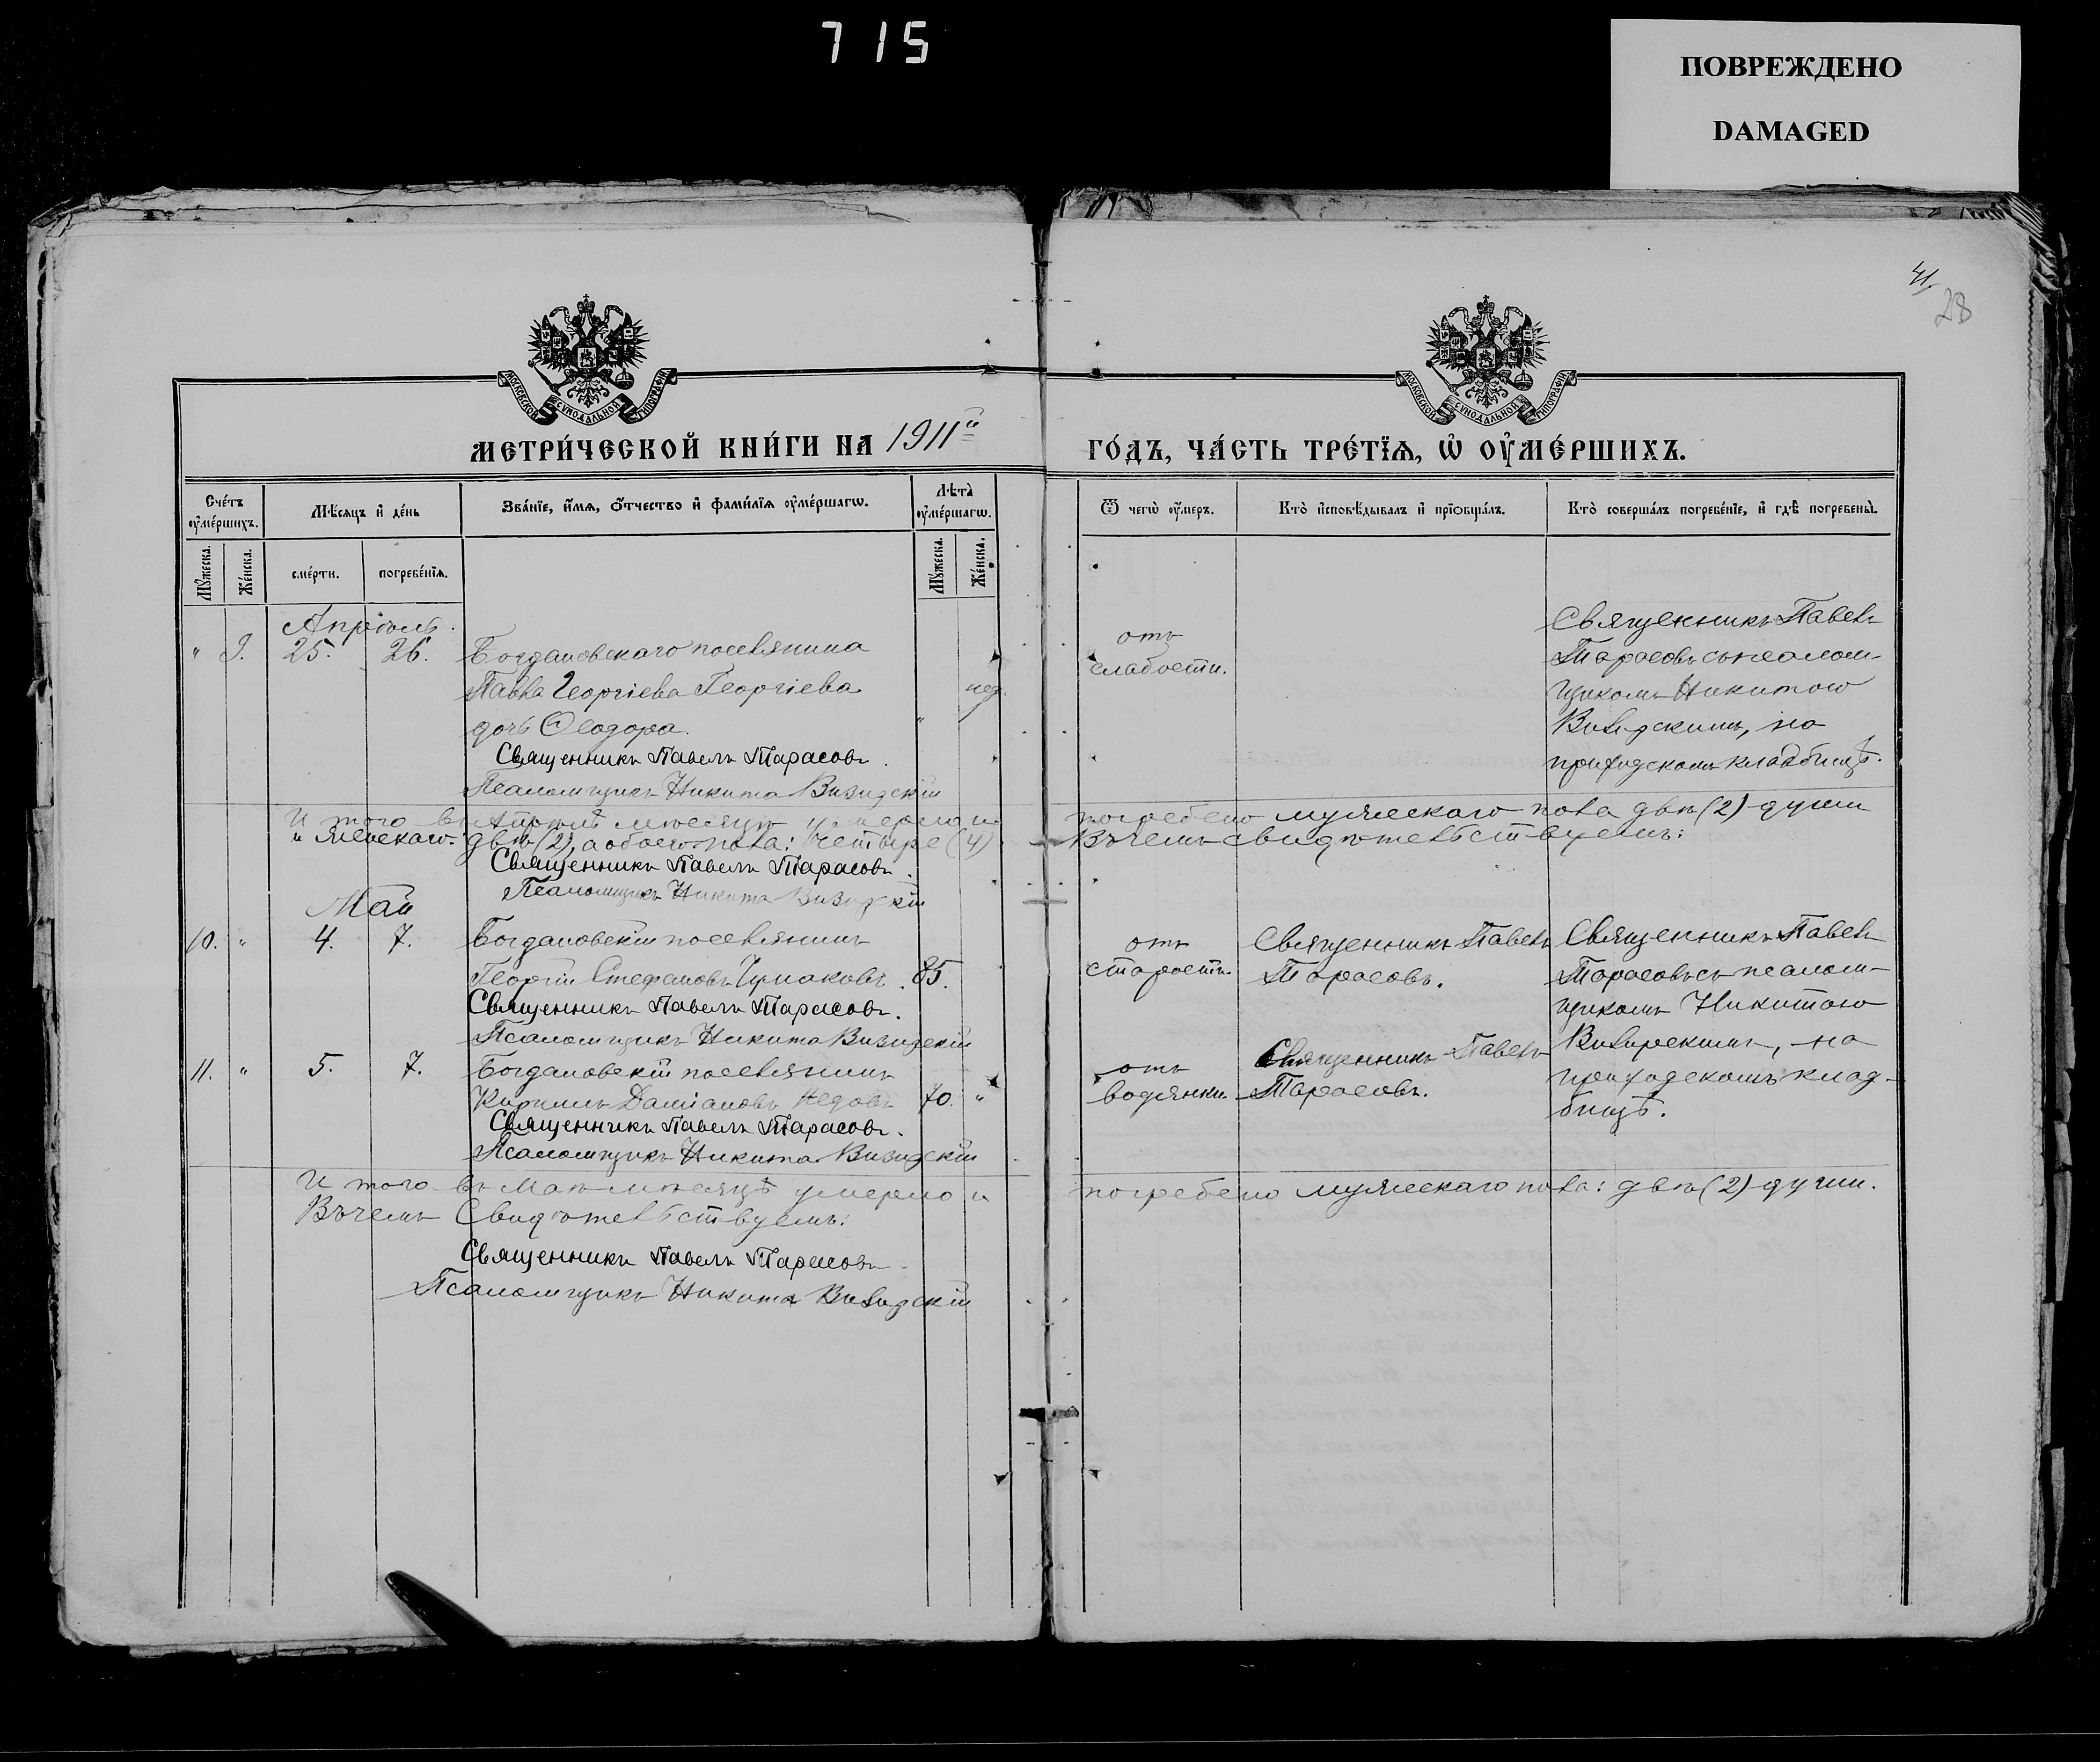 715
ПОВРЕЖДЕНО
DAMAGED
41.
28
МОСКОВСКОЙ СѴНОДАЛЬНОЙ ТИПОГРАФІИ
МОСКОВСКОЙ СѴНОДАЛЬНОЙ ТИПОГРАФІИ
МЕТРИ́ЧЕСКОЙ КНИ́ГИ НА 1911й
ГО́ДЪ, ЧА́СТЬ ТРЕ́ТЇѦ, Ѡ҆ ОУ҆МЕ́РШИХЪ.
Сче́тъ оу҆ме́ршихъ.
Мѣ́сяцъ и҆ де́нь
Зва́нїе, и҆́мѧ, ѻ҆́тчество и҆ фами́лїѧ оу҆ме́ршагѡ.
Лѣ́та̀ оу҆ме́ршагѡ.
Ѿ чегѡ̀ оу҆́меръ.
Кто̀ и҆сповѣ́дывалъ и҆ прїѡбща́лъ.
Кто̀ соверша́лъ погребе́нїе, и҆ гдѣ̀ погребены̀.
Му́жеска.
Же́нска.
сме́рти.
погребе́нїѧ.
Му́жеска.
Же́нска.
Апрѣль.
" 9. 25. 26. Богдановскаго поселянина
Павла Георгіева Георгіева нед.
дочь Ѳеодора. "
Священникъ Павелъ Тарасовъ.
Псаломщикъ Никита Визирскій
отъ
слабости.
Священникъ Павелъ
Тарасовъ съ псалом-
щикомъ Никитою
Визирскимъ, на
приходскомъ кладбищѣ.
И того въ Апрѣлѣ мѣсяцѣ умерло и погребено мужескаго пола двѣ (2) души
и женскаго: двѣ (2), а обоего пола: четыре (4) Въ чемъ свидѣтельствуемъ:
Священникъ Павелъ Тарасовъ.
Псаломщикъ Никита Визирскій
Май
10. " 4. 7. Богдановскій поселянинъ
Георгій Стефановъ 85.
Священникъ Павелъ Тарасовъ.
Псаломщикъ Никита Визирскій
отъ
старости.
Священникъ Павелъ
Тарасовъ.
Священникъ Павелъ
Тарасовъ съ псалом-
щикомъ Никитою
Визирскимъ, на
приходскомъ клад-
бищѣ.
11. " 5. 7. Богдановскій поселянинъ
Кириллъ Даміановъ Недовъ 70. "
Священникъ Павелъ Тарасовъ.
Псаломщикъ Никита Визирскій
отъ
водянки.
Священникъ Павелъ
Тарасовъ.
И того въ Маѣ мѣсяцѣ умерло и погребено мужескаго пола: двѣ (2) души.
Въ чемъ Свидѣтельствуемъ:
Священникъ Павелъ Тарасовъ.
Псаломщикъ Никита Визирскій